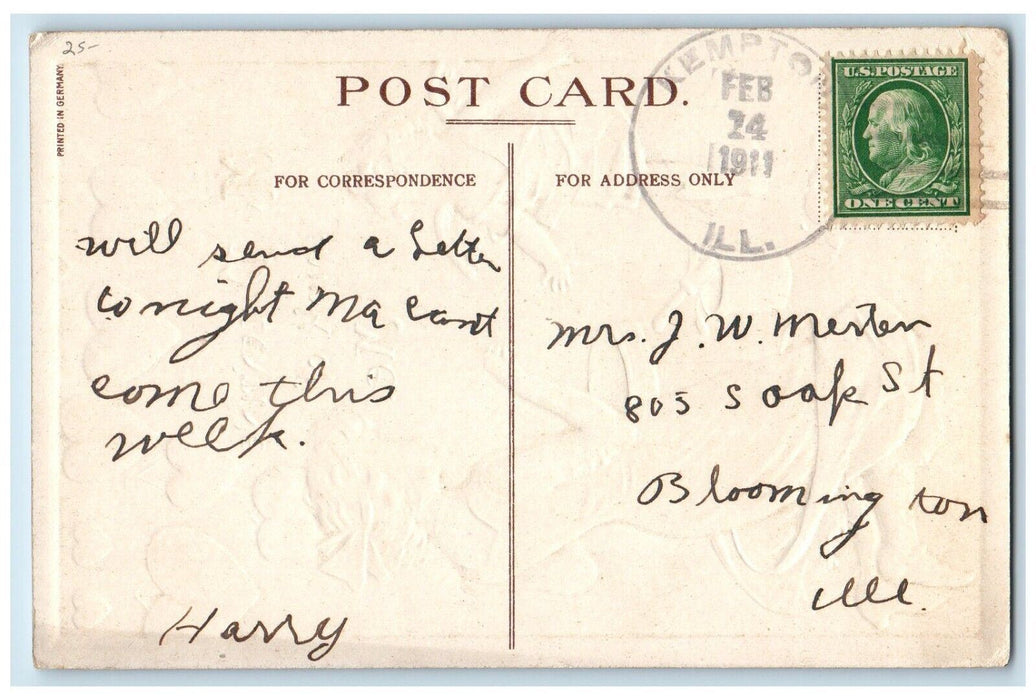 25-
PRINTED IN GERMANY
POST CARD.
KEMPTON
FEB
24
1911
ILL.
U.S. POSTAGE
ONE CENT
FOR CORRESPONDENCE
FOR ADDRESS ONLY
will send a letter
tonight Ma cant
come this
week.
Harry
Mrs. J. W. Merten
805 S oak St
Bloomington
Ill.